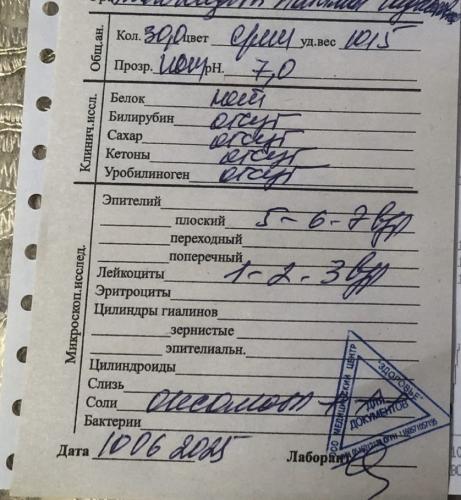 Общ.ан.
Кол. 30,0 цвет с/жел уд.вес 1015
Прозр. рН. 7,0
Клинич.иссл.
Белок
Билирубин отсут
Сахар отсут
Кетоны отсут
Уробилиноген отсут
Микроскоп.исслед.
Эпителий
плоский 5-6-7 в/зр
переходный
поперечный
Лейкоциты 1-2-3 в/зр
Эритроциты
Цилиндры гиалинов
зернистые
эпителиальн.
Цилиндроиды
Слизь
Соли оксалаты
Бактерии
ООО МЕДИЦИНСКИЙ ЦЕНТР "ЗДОРОВЬЕ"
ДЛЯ ДОКУМЕНТОВ
Дата 10 06 2025 Лаборант